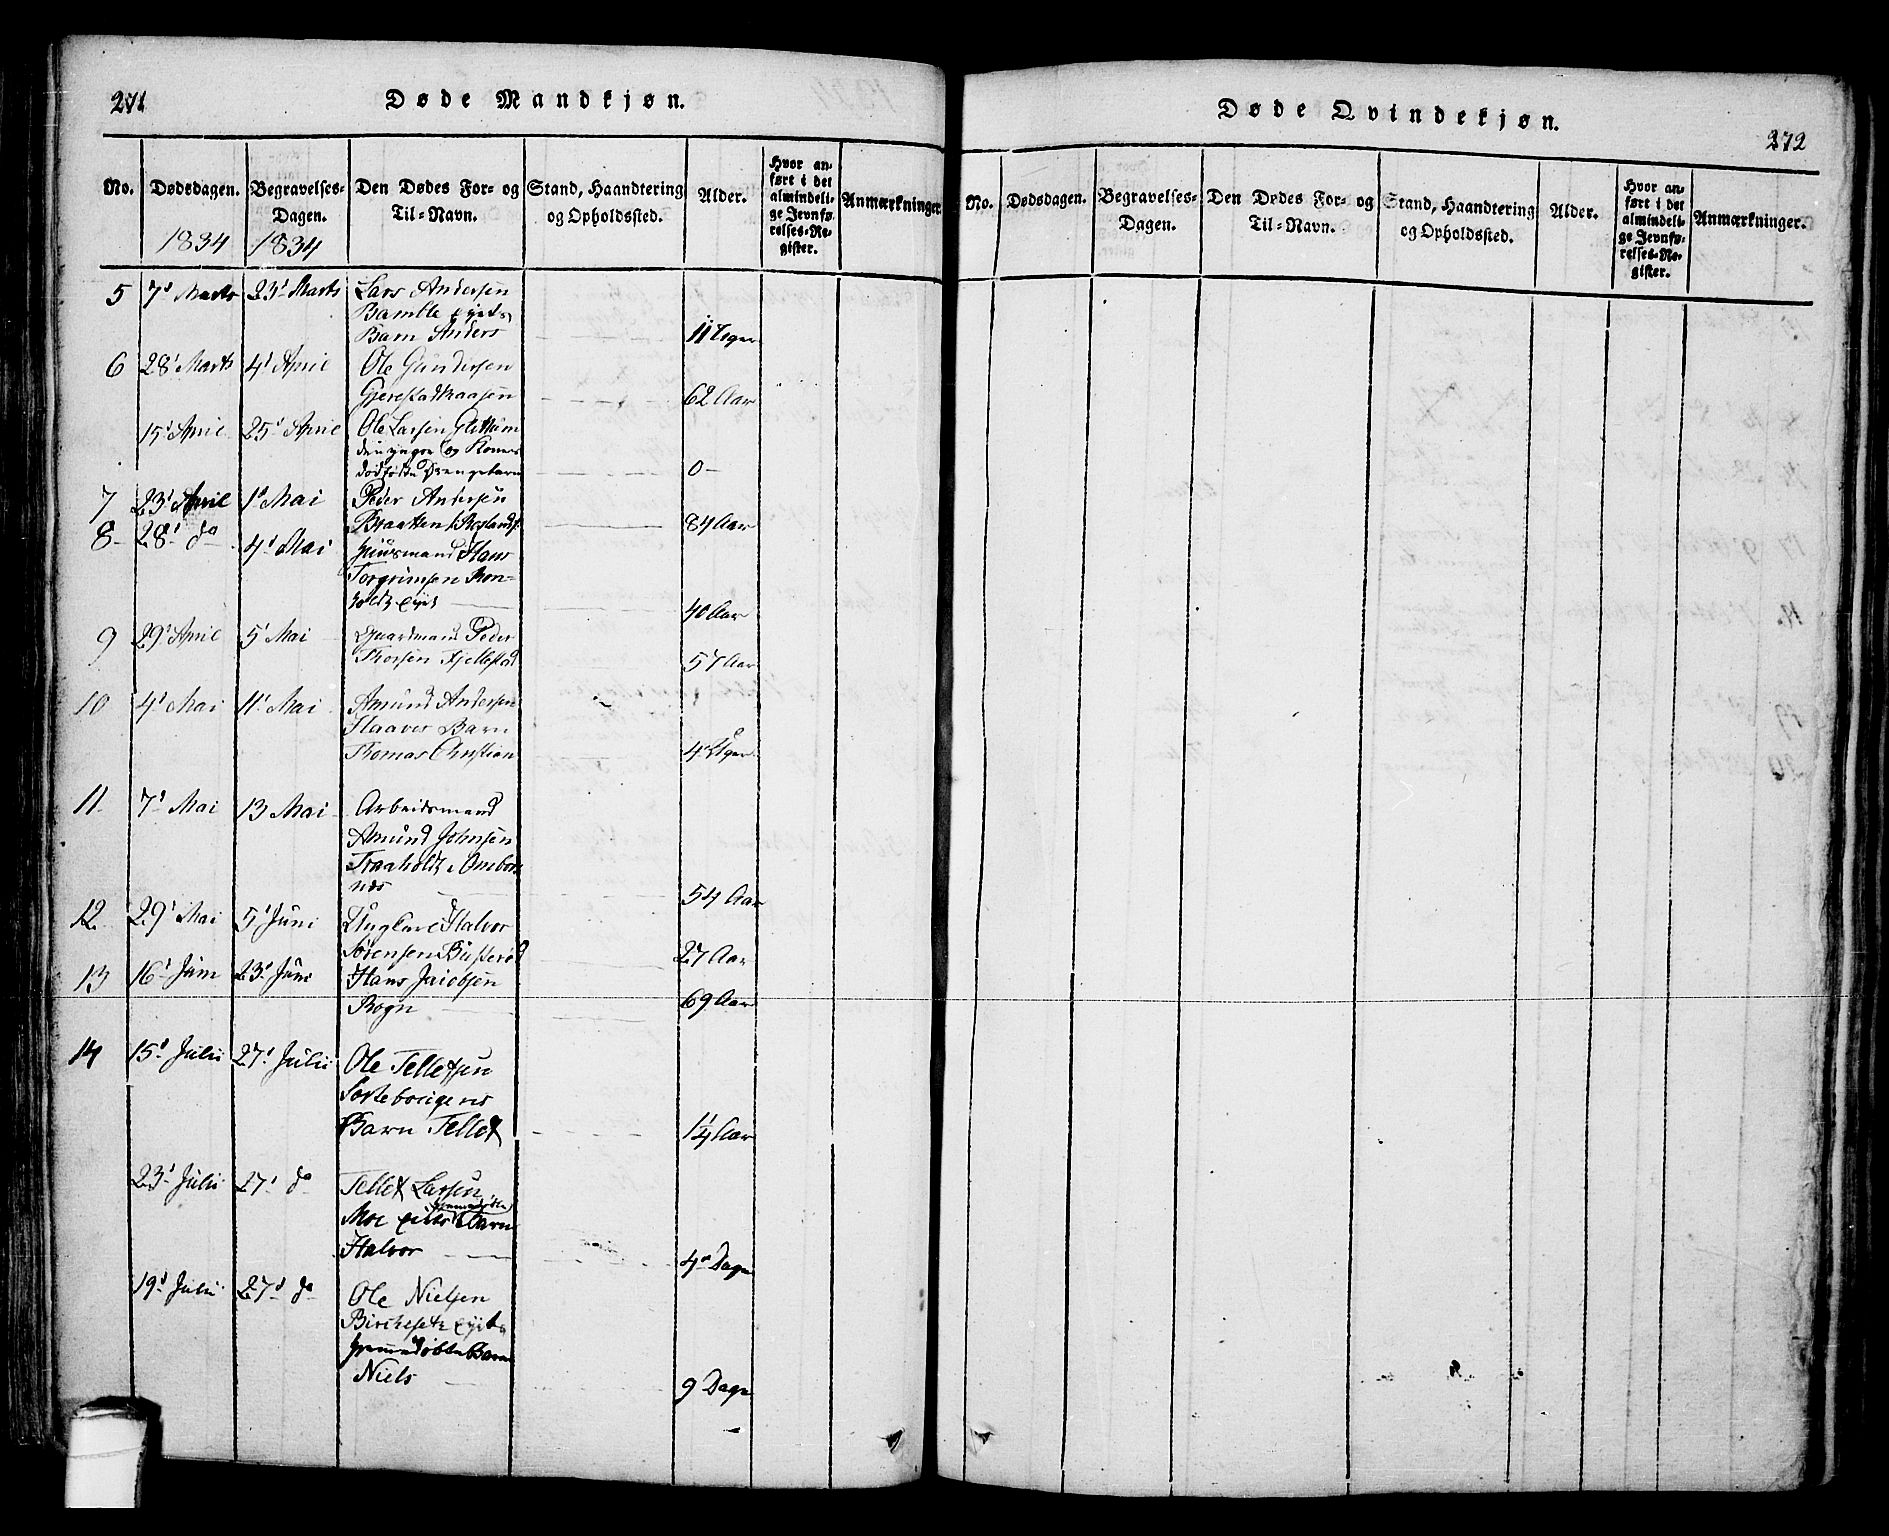 271 Døde Mandkjøn.
No. Dødsdagen. Begravelses-Dagen. Den Dødes For- og Til-Navn. Stand, Haandtering og Opholdssted. Alder. Hvor anført i det almindelige Jevnførelses-Register. Anmærkninger.
1834 1834
5 7d Marts 23d Marts Lars Andersen
Bamble Eyets
Barn Anders 11 Uger
6 28d Marts 4d April Ole Gundersen
62 Aar
15d April 25d April Ole Larsen
den yngre og Kones
dødfødte Drengebarn 0-
7 23d April 1d Mai Peder Andersen
Braatten 84 Aar
8 28d do 4d Mai Huusmand Hans
Torgrimsen Ron-
holdt Eyet 40 Aar
9 29d April 5d Mai Gaardmand Peder
Thorsen Fjellestad 57 Aar
10 4d Mai 11d Mai Amund Andersen
Haaves Barn
Thomas Christian 4 Uger
11. 7d Mai 13 Mai Arbeidsmand
Amund Johnsen
Traaholdt
54 Aar
12. 29d Mai 5d Juni Ungkarl Halvor
Sørensen Busterød 27 Aar
13 16d Juni 23d Juni Hans Jacobsen
Rogn 69 Aar
14 15d Juli 27d Juli Ole Tellefsen
Sorteborgens
Barn Tellef 1/4 Aar
23d Juli 27d do Tellef Larsen
Moe Eiets hjemmedøbte Barn
Halvor 4 Dage
19d Juli 27d do Ole Nielsen
Birkeset Eyets
hjemmedøbte Barn
Niels 9 Dage
Døde Qvindekjøn. 272
No. Dødsdagen. Begravelses-Dagen. Den Dødes For- og Til-Navn. Stand, Haandtering og Opholdssted. Alder. Hvor anført i det almindelige Jevnførelses-Register. Anmærkninger.